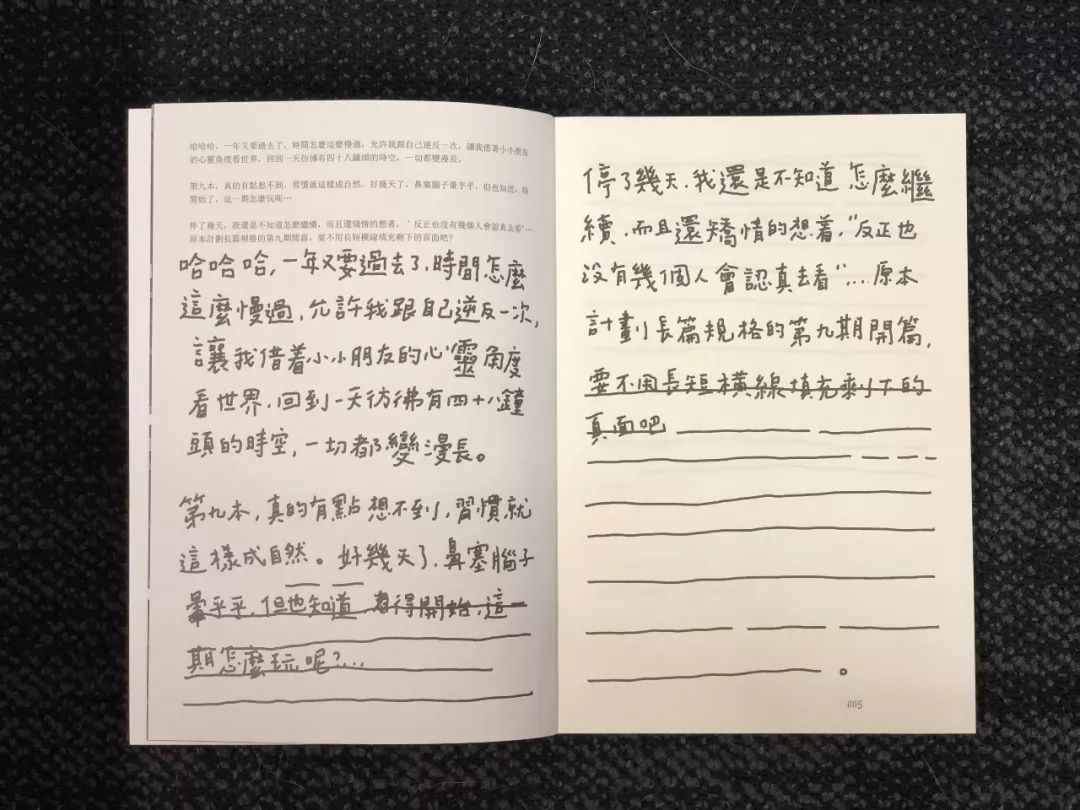 哈哈哈，一年又要過去了，時間怎麼這麼慢過，允許我跟自己逆反一次，讓我借著小小朋友
的心靈角度看世界，回到一天仿彿有四十八鐘頭的時空，一切都變漫長。
第九本，真的有點想不到，習慣就這樣成自然。好幾天了，鼻塞腦子暈乎乎，但也知道，得
開始了，這一期怎麼玩呢…
停了幾天，我還是不知道怎麼繼續，而且還矯情的想著，〝反正也沒有幾個人會認真去看〞…
原本計劃長篇規格的第九期開篇，要不用長短橫線填充剩下的頁面吧？
哈哈哈，一年又要過去了，時間怎麼
這麼慢過，允許我跟自己逆反一次，
讓我借着小小朋友的心靈角度
看世界，回到一天彷彿有四十八鐘
頭的時空，一切都變漫長。
第九本，真的有點想不到，習慣就
這樣成自然。好幾天了，鼻塞腦子
暈乎乎，但也知道，得開始，這一
期怎麼玩呢？…
停了幾天，我還是不知道怎麼繼
續，而且還矯情的想着，“反正也
沒有幾個人會認真去看”…原本
計劃長篇規格的第九期開篇，
要不用長短橫線填充剩下的
頁面吧
005